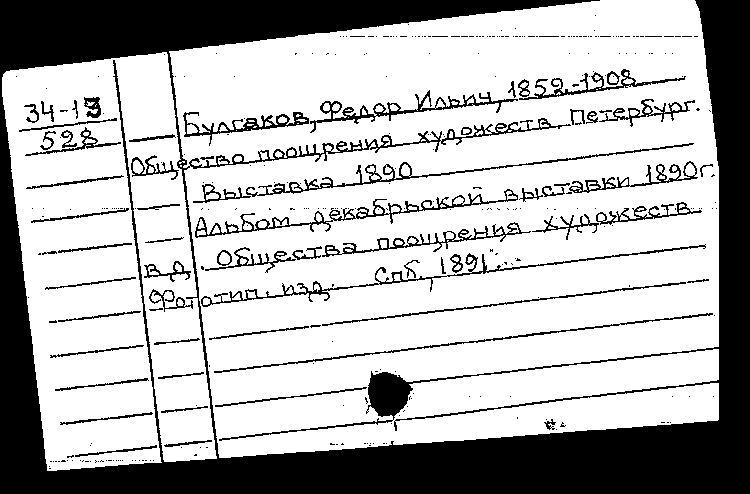 34-13
528
Булгаков, Федор Ильич, 1852-1908
Общество поощрения художеств. Петербург.
Выставка. 1890
Альбом декабрьской выставки 1890г.
в д. Общества поощрения художеств
Фототип. изд. Спб., 1891